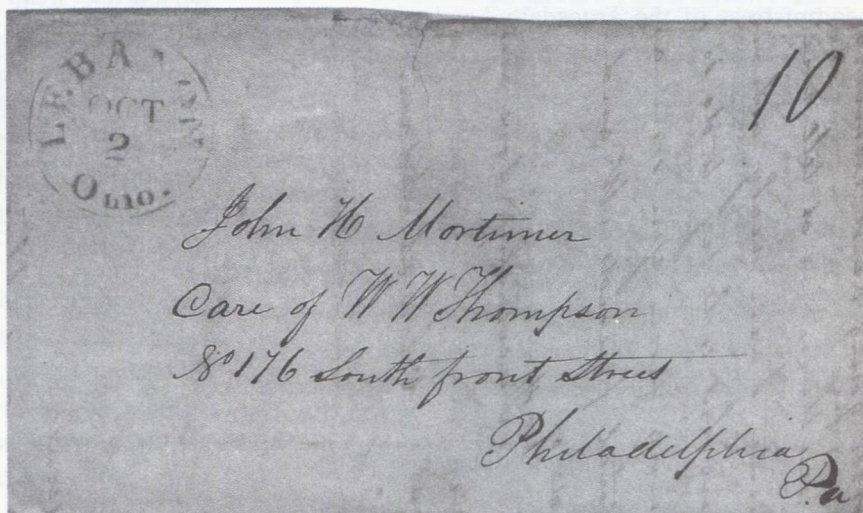 LEBANON
OCT
2
OHIO.
10
John H Mortimer
Care of W W Thompson
No 176 South front Street
Philadelphia
Pa